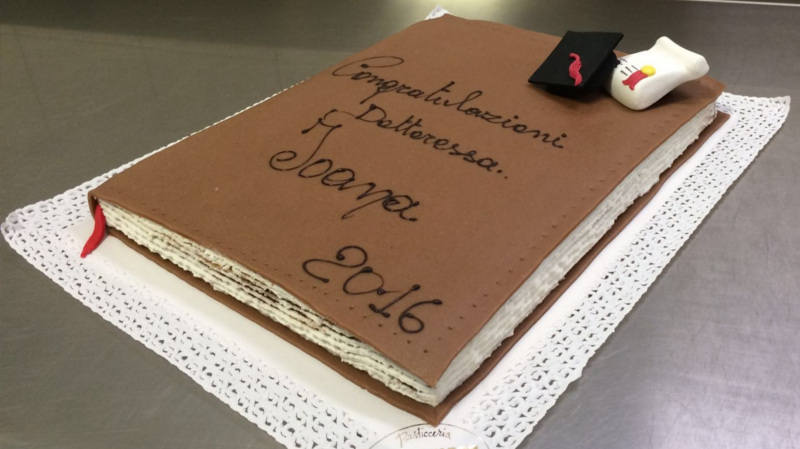 Congratulazioni
Dottoressa..
Ioana
2016
Pasticceria